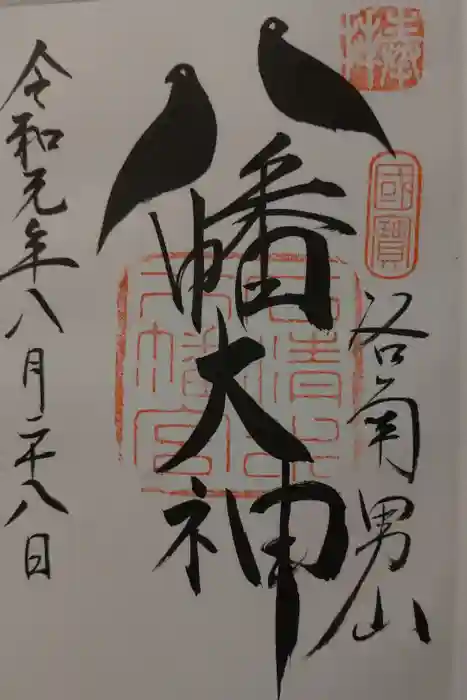 奉拝
國寶
洛南男山
八幡大神
石清水八幡宮
令和元年八月二十八日